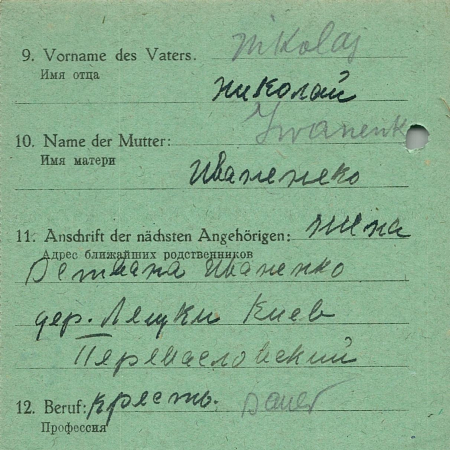 Nikolaj
9. Vorname des Vaters.
Имя отца
Николай
Iwanenk
10. Name der Mutter:
Имя матери
Иваненеко
11. Anschrift der nächsten Angehörigen: жена
Адрес ближайших родственников
Иваненко
дер. Лецки Киев
Переяасловский
12. Beruf: кресть. Bauer
Профессия